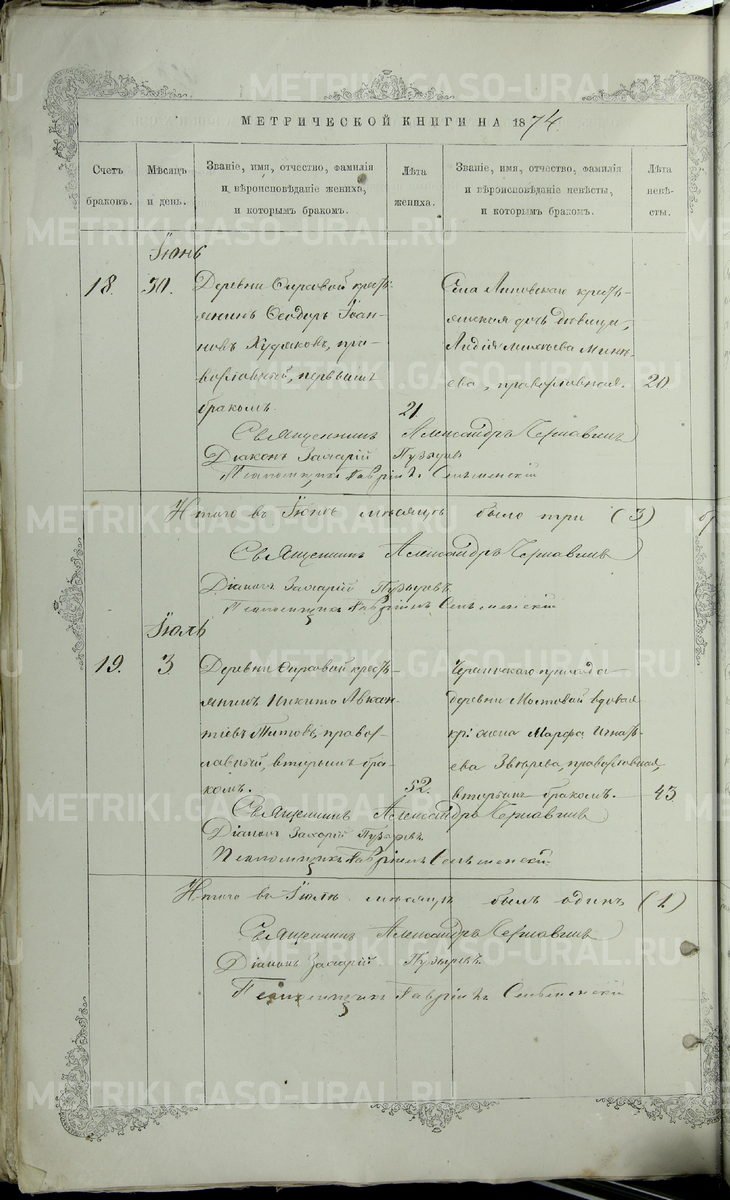 МЕТРИЧЕСКОЙ КНИГИ НА 1874.
Счетъ браковъ.
Мѣсяцъ и день.
Званіе, имя, отчество, фамилія и вѣроисповѣданіе жениха, и которымъ бракомъ.
Лѣта жениха.
Званіе, имя, отчество, фамилія и вѣроисповѣданіе невѣсты, и которымъ бракомъ.
Лѣта невѣсты.
Іюнь
18. 30. Деревни крестьянинъ Ѳеодоръ Іоанновъ Худяковъ, православный, первымъ бракомъ. 21.
Села Липовскаго крестьянская дочь девица, Лидія Минѣева, православная. 20
Священникъ Александръ Чернавинъ
Діаконъ Захарій Пузыревъ
Псаломщикъ Гавріилъ
Итого въ Іюнѣ мѣсяцѣ было три (3)
Священникъ Александръ Чернавинъ
Діаконъ Захарій Пузыревъ
Псаломщикъ Гавріилъ
Іюль
19. 3 Деревни крестьянинъ Никита Титовъ, православный, вторымъ бракомъ. 52.
прихода деревни Мостовой вдовая кр: жена Марфа Игнатьева Звѣрева, православная, вторымъ бракомъ. 43
Священникъ Александръ Чернавинъ
Діаконъ Захарій Пузыревъ
Псаломщикъ Гавріилъ
Итого въ Іюлѣ мѣсяцѣ былъ одинъ (1)
Священникъ Александръ Чернавинъ
Діаконъ Захарій Пузыревъ
Псаломщикъ Гавріилъ
METRIKI.GASO-URAL.RU